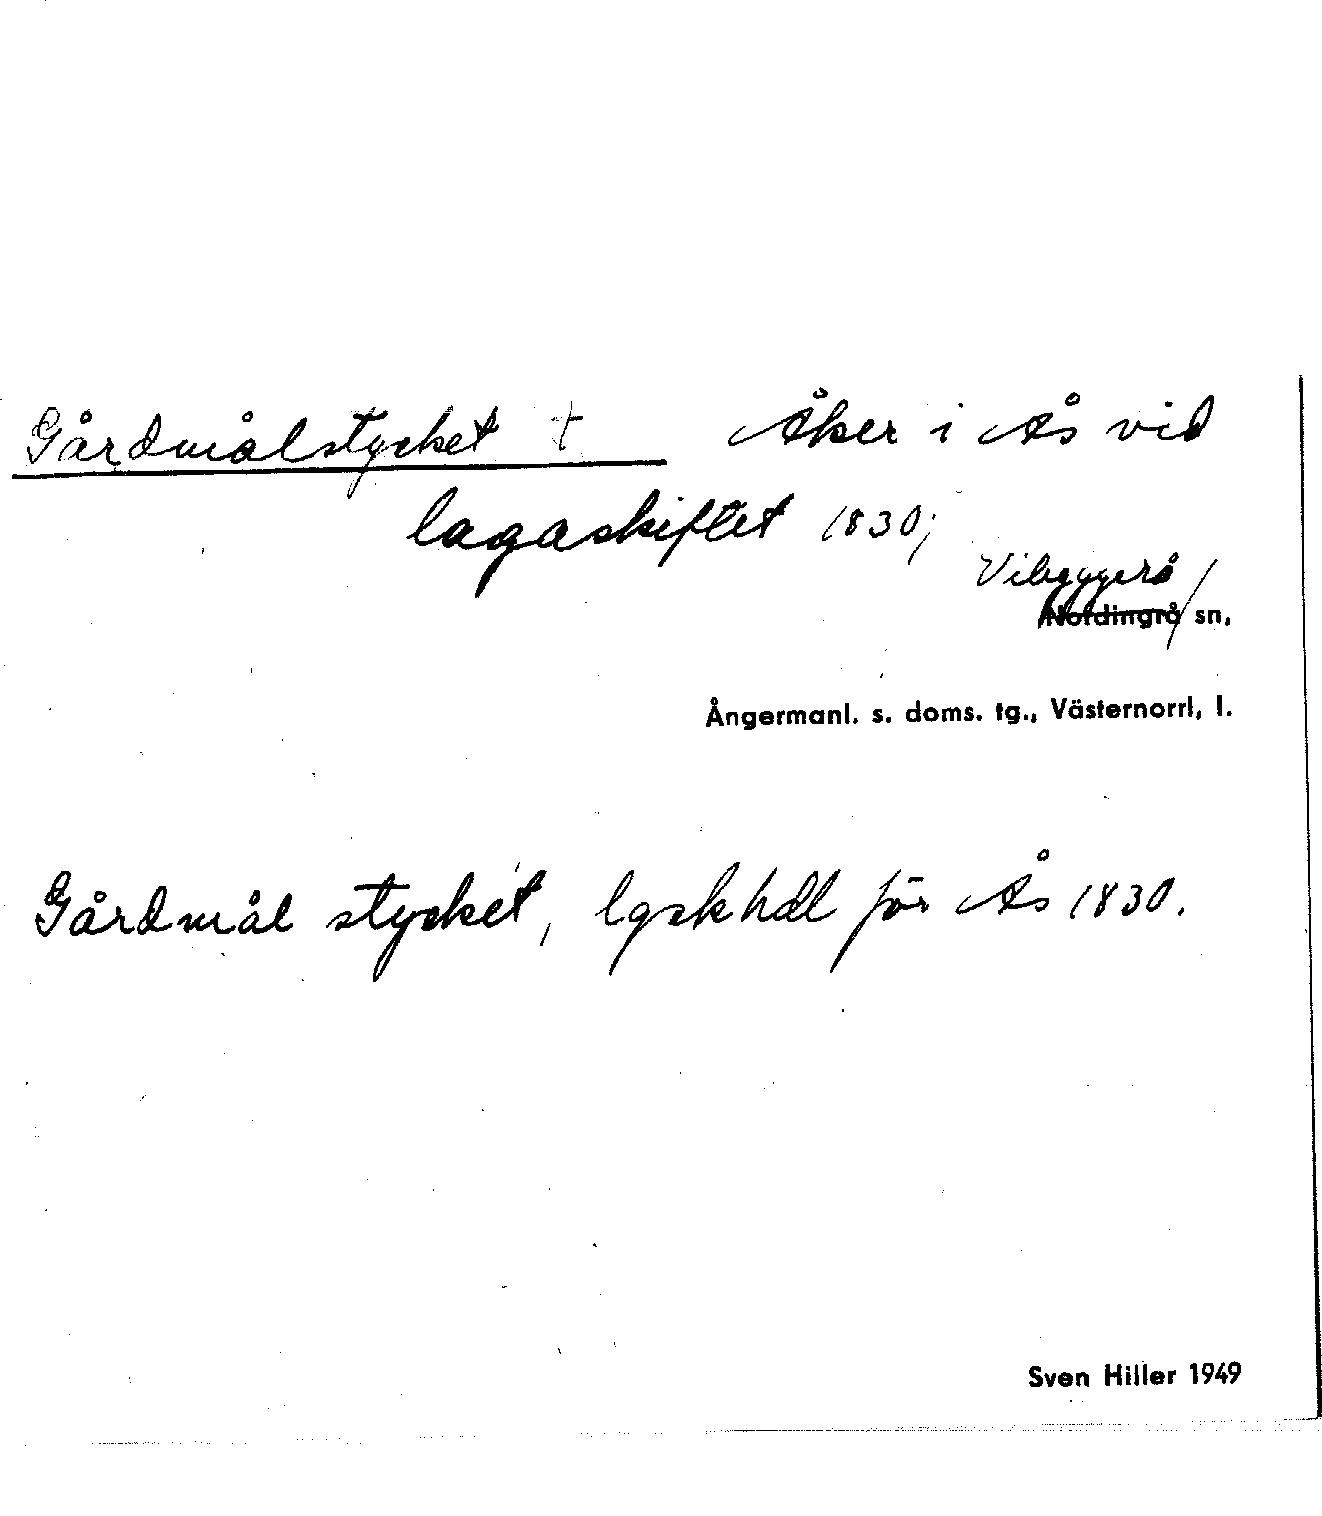 Gårdmålstycket + Åker i Ås vid
lagaskiftet 1830;
Vibyggerå /
Nordingrå / sn,
Ångermanl. s. doms. tg., Västernorrl, l.
Gårdmål stycket, lgskhdl för Ås 1830.
Sven Hiller 1949